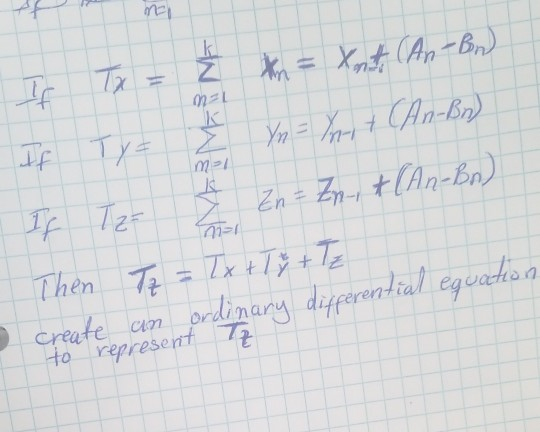 m=1
If Tx = k Σ m=1 Xn = Xn-1 + (An-Bn)
If Ty = k Σ m=1 Yn = Yn-1 + (An-Bn)
If Tz = k Σ m=1 Zn = Zn-1 + (An-Bn)
Then Tz = Tx + Ty + Tz
create an ordinary differential equation
to represent Tz